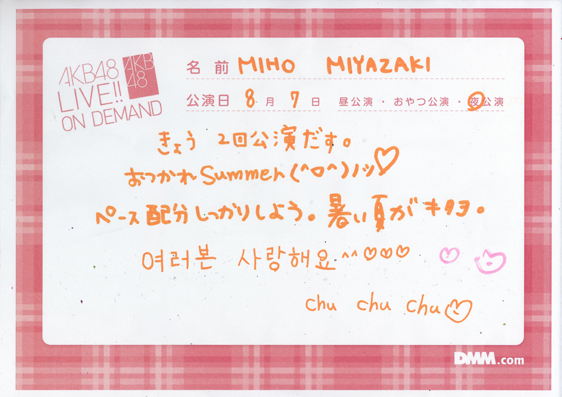 AKB48
LIVE!!
ON DEMAND
AKB
48
名前 MIHO MIYAZAKI
公演日 8月7日 昼公演・おやつ公演・夜公演
きょう 2回公演だす。
おつかれSummer(^o^)ノッ♡
ペース配分しっかりしよう。暑い夏がキタヨ。
여러본 사랑해요^^♡♡♡
chu chu chu♡
DMM.com